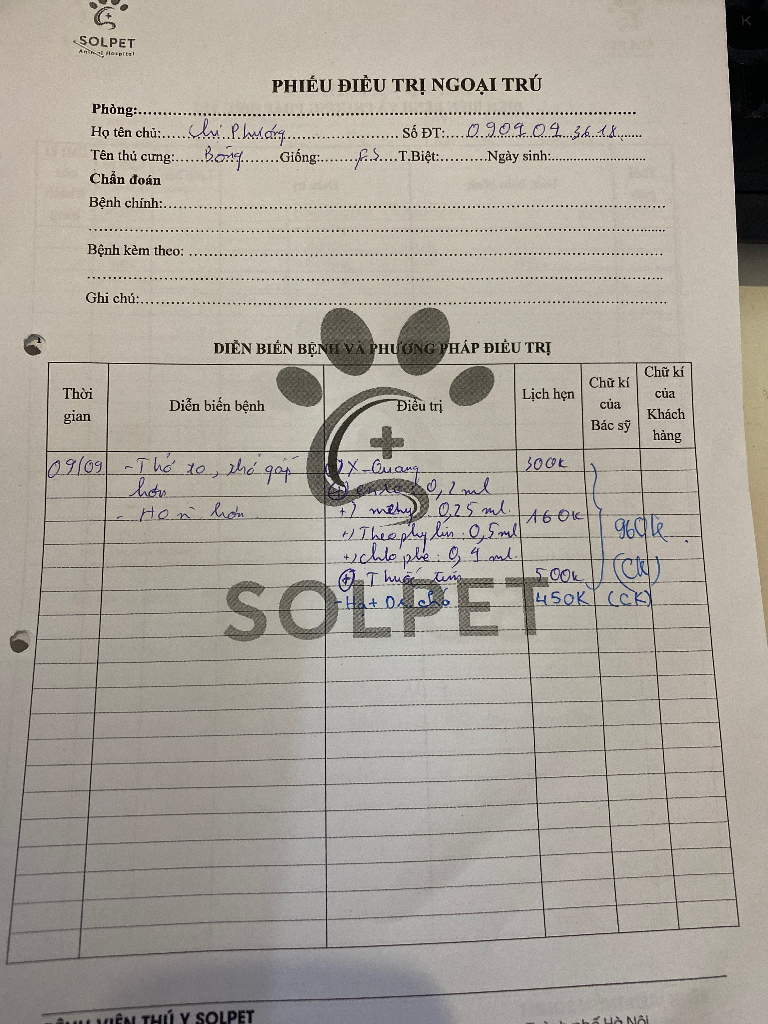 SOLPET
Animal Hospital
PHIẾU ĐIỀU TRỊ NGOẠI TRÚ
Phòng:
Họ tên chủ: Chị Phương Số ĐT: 090909 3618
Tên thú cưng: Bông Giống: F.S T.Biệt: Ngày sinh:
Chẩn đoán
Bệnh chính:
Bệnh kèm theo:
Ghi chú:
DIỄN BIẾN BỆNH VÀ PHƯƠNG PHÁP ĐIỀU TRỊ
Thời gian Diễn biến bệnh Điều trị Lịch hẹn Chữ kí của Bác sỹ Chữ kí của Khách hàng
09/09 - Thở to, thở gấp X-Quang 300k
hơn 0,2 ml
- Ho nhiều hơn +) methy 0,25 ml 160k
+) Theophylin: 0,5 ml 960k
+) chlophe: 0,4 ml (CK)
+ Thuốc tim 500k
- Hạt chó 450K (CK)
SOLPET
BỆNH VIỆN THÚ Y SOLPET
Thành phố Hà Nội